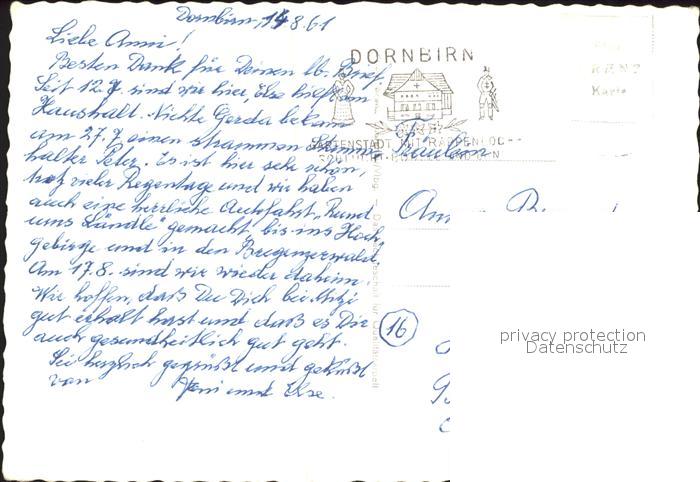 Dornbirn, 14.8.61
Liebe Anni!
Besten Dank für Deinen lb. Brief.
Seit 12.7. sind wir hier, Else hilft im
Haushalt. Nichte Gerda bekam
am 27.7. einen strammen Stamm-
halter Peter. Es ist hier sehr schön,
trotz vieler Regentage und wir haben
auch eine herrliche Autofahrt "Rund
ums Ländle" gemacht, bis ins Hoch-
gebirge und in den Bregenzerwald.
Am 17.8. sind wir wieder daheim.
Wir hoffen, daß Du Dich bei Mitzi
gut erholt hast und daß es Dir
auch gesundheitlich gut geht.
Sei herzlich gegrüßt und geküßt
von
und Else.
DORNBIRN
GARTENSTADT MIT RAPPENLOCH-
Karte
Fräulein
16
privacy protection
Datenschutz